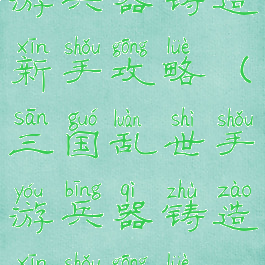 游兵器铸造
xīn shǒu gōng lüè
新手攻略（
sān guó luàn shì shǒu
三国乱世手
yóu bīng qì zhù zào
游兵器铸造
xīn shǒu gōng lüè